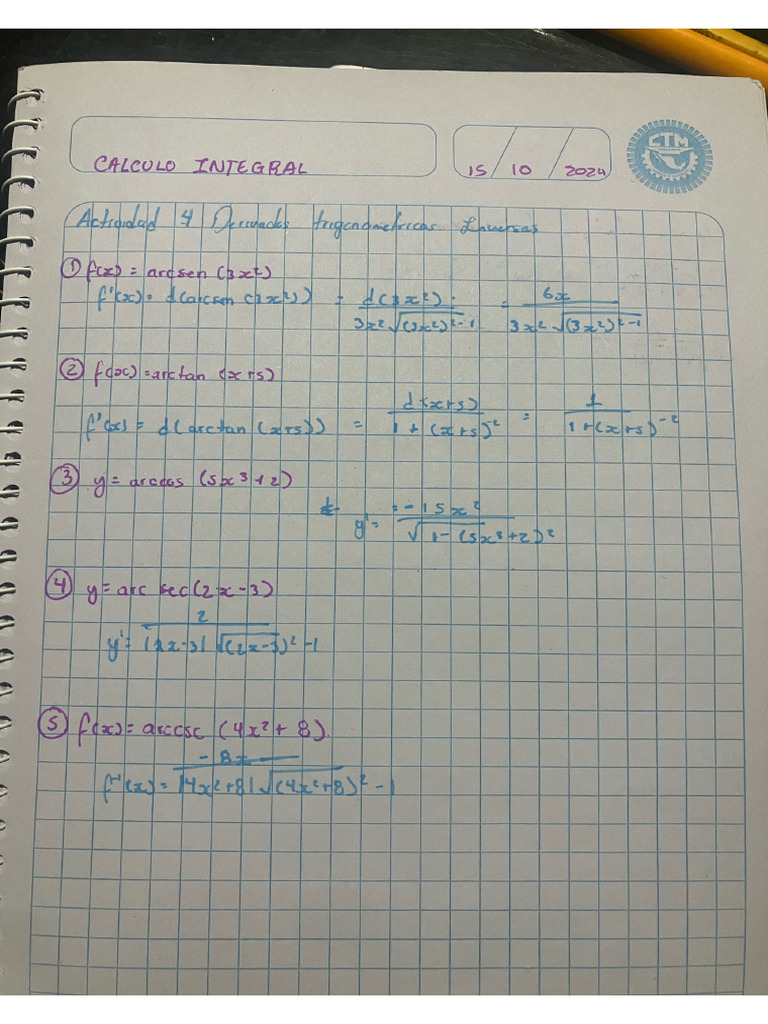 CALCULO INTEGRAL
15/10/2024
CTM
Actividad 4 Derivadas trigonometricas Inversas
① f(x) = arcsen (3x²)
f'(x) = d(arcsen (3x²)) = d(3x²) / 3x² √(3x²)²-1 = 6x / 3x² √(3x²)²-1
② f(x) = arctan (x+5)
f'(x) = d(arctan (x+5)) = d(x+5) / 1 + (x+5)⁻² = 1 / 1+(x+5)⁻²
③ y = arccos (5x³+2)
y' = -15x² / √1-(5x³+2)²
④ y = arc sec(2x-3)
y' = 2 / |2x-3| √(2x-3)²-1
⑤ f(x) = arccsc (4x²+8)
f'(x) = -8x / |4x²+8| √(4x²+8)²-1